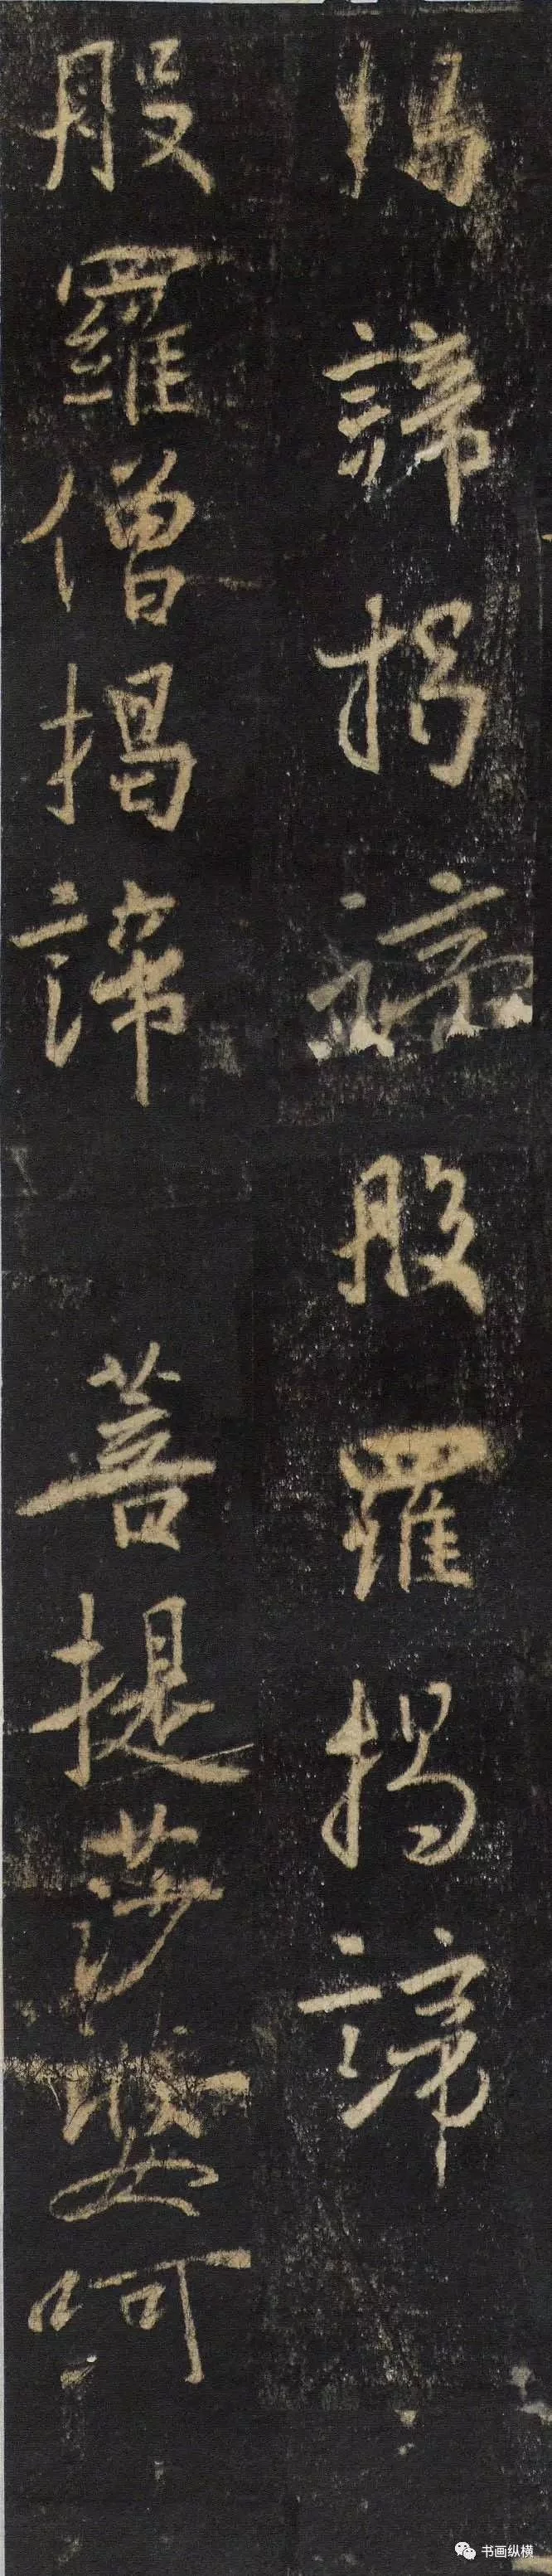 揭諦揭諦般羅揭諦
般羅僧揭諦 菩提莎婆呵
书画纵横